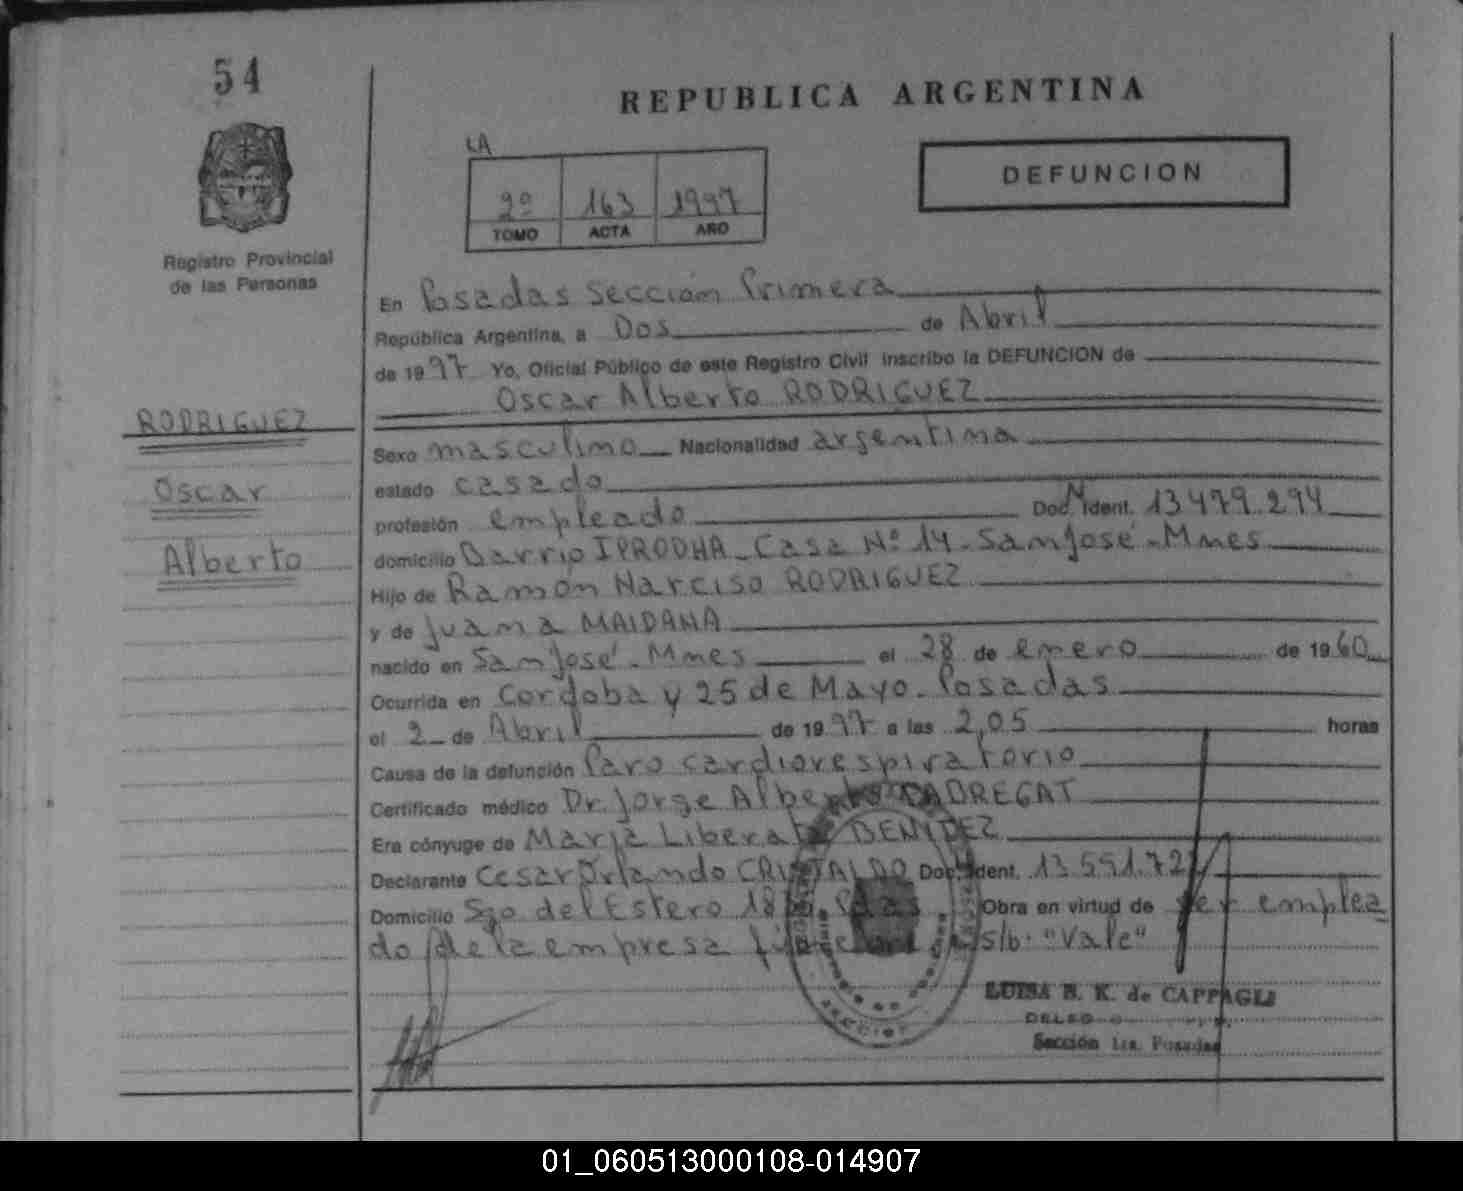 54
REPUBLICA ARGENTINA
LA
DEFUNCION
2º 163 1997
TOMO ACTA AÑO
Registro Provincial
de las Personas
En Posadas Sección Primera
República Argentina, a Dos de Abril
de 1997 Yo, Oficial Público de este Registro Civil inscribo la DEFUNCION de
Oscar Alberto RODRIGUEZ
RODRIGUEZ
Oscar
Alberto
Sexo masculino Nacionalidad argentina
estado casado
profesión empleado Doc. N Ident. 13479.294
domicilio Barrio IPRODHA - Casa Nº 14 - San José - Mnes
Hijo de Ramón Narciso RODRIGUEZ
y de Juana MAIDANA
nacido en San José - Mnes el 28 de enero de 1960
Ocurrida en Cordoba y 25 de Mayo - Posadas
el 2 de Abril de 1997 a las 2,05 horas
Causa de la defunción Paro cardiorespiratorio
Certificado médico Dr. Jorge Alberto
Era cónyuge de María BENYDEZ
Declarante Cesar Orlando CRISTALDO Doc. Ident. 13.591.72
Domicilio Sgo del Estero Obra en virtud de ser emplea
do de la empresa s/b. "Vale"
LUISA B. K. de CAPPAGLI
Sección 1ra. Posadas
01_060513000108-014907